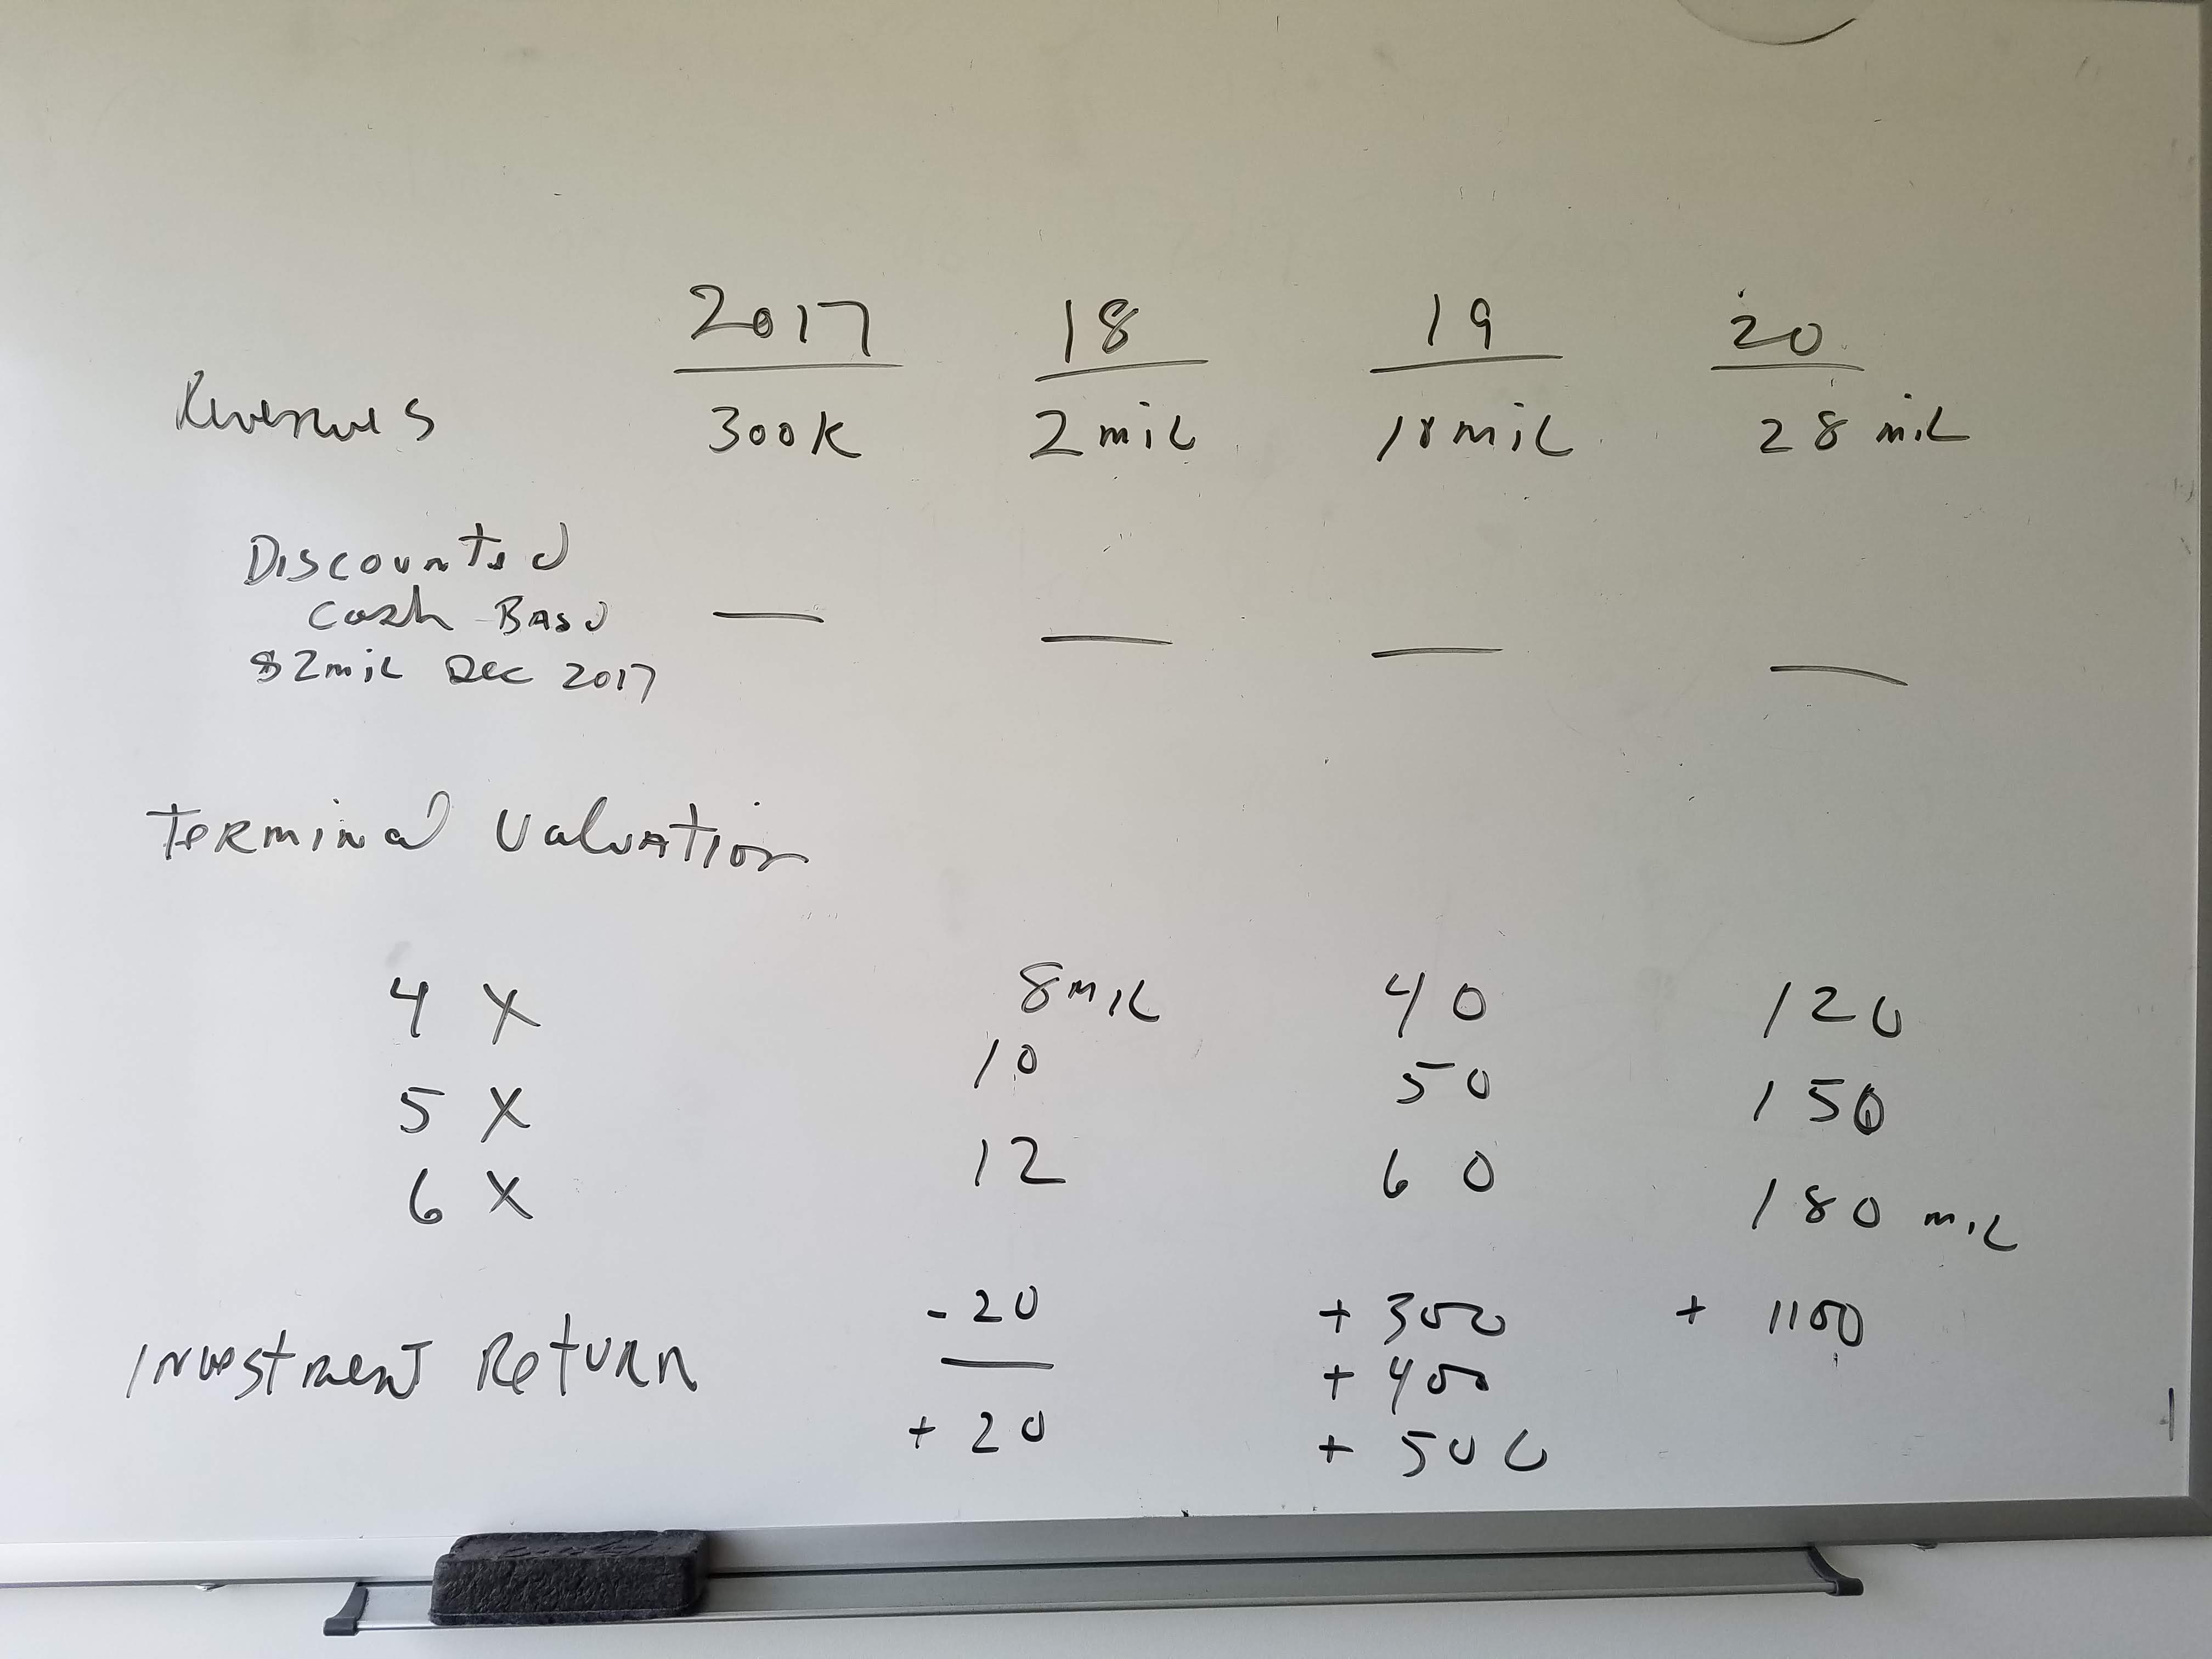 2017 18 19 20
Revenues 300K 2 mil 10 mil 28 mil
Discounted
Cash Basd — — — —
$2mil Dec 2017
Terminal Valuation
4 X 8mil 40 120
5 X 10 50 150
6 X 12 60 180 mil
- 20 + 300 + 1100
Investment Return — + 400
+ 20 + 500